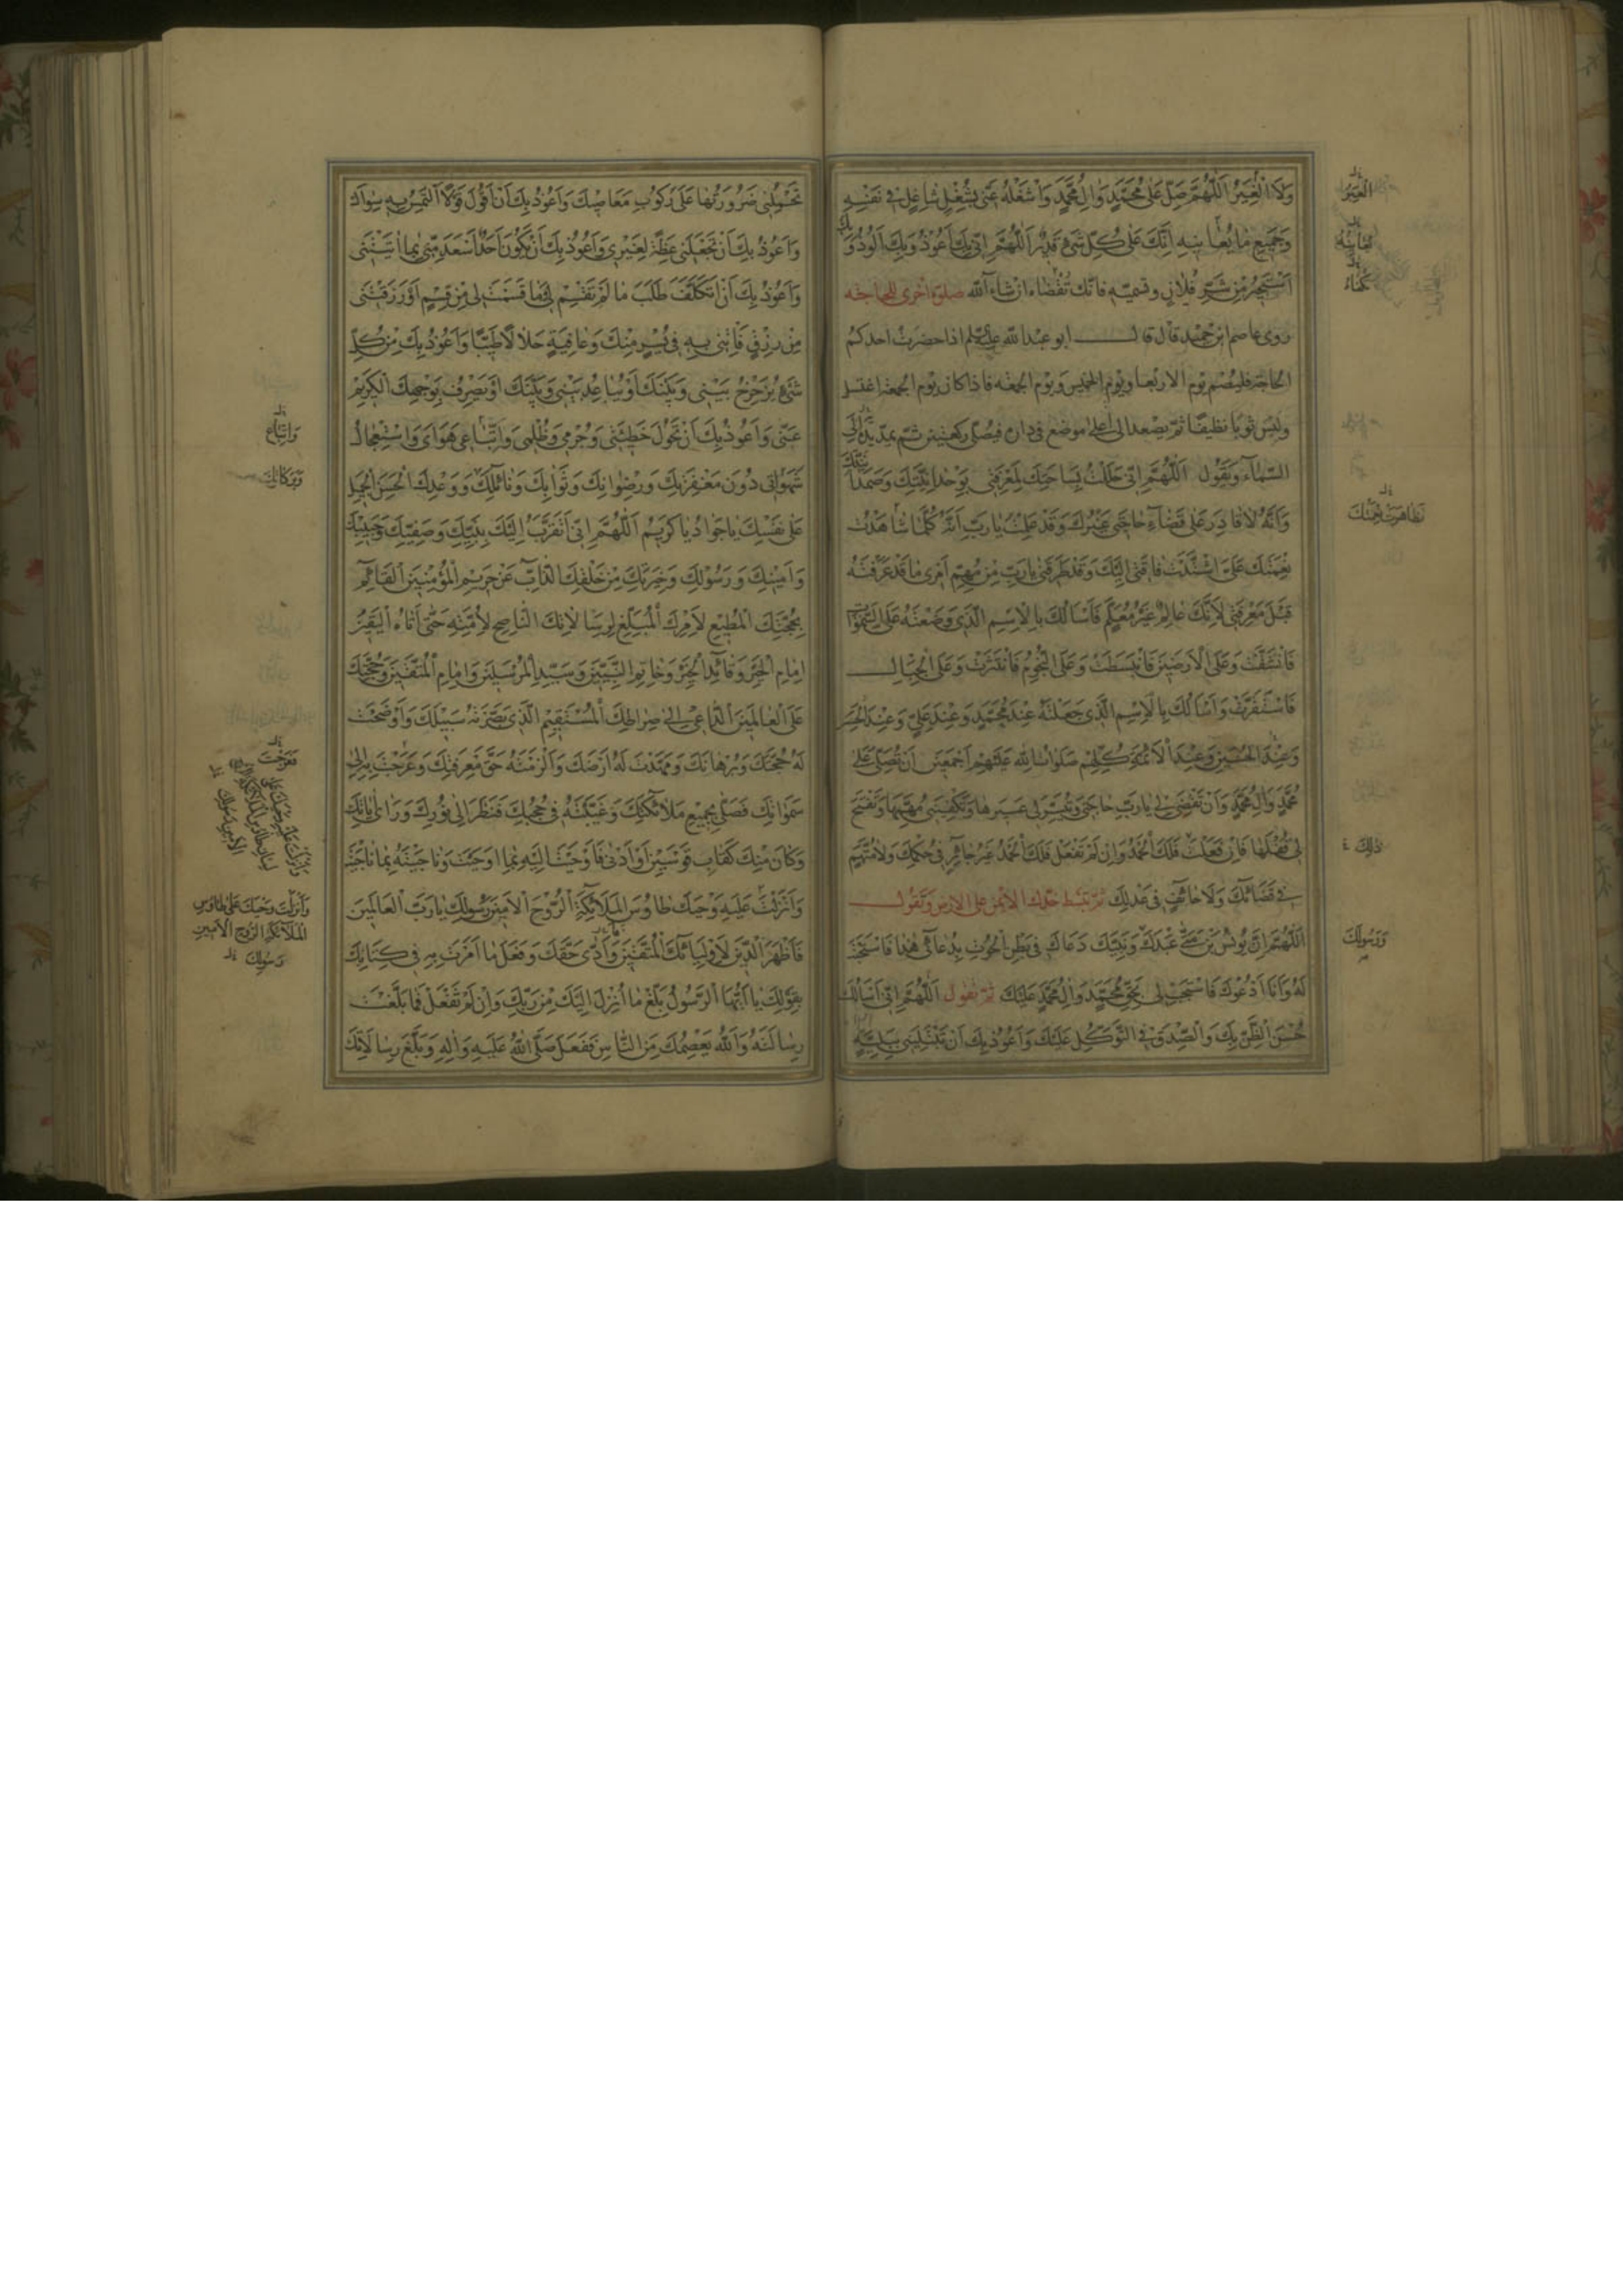 وَلَا الْغِيَرُ اَللّٰهُمَّ صَلِّ عَلٰى مُحَمَّدٍ وَاٰلِ مُحَمَّدٍ وَاشْغَلْهُ عَنّى بِشُغْلٍ شٰاغِلٍ فى نَفْسِهِ
وَجَميعِ مٰا يُعٰانيهِ اِنَّكَ عَلٰى كُلِّ شَىْءٍ قَديرٌ اَللّٰهُمَّ اِنّى بِكَ اَعُوذُ وَبِكَ اَلُوذُ وَبِكَ
اَسْتَجيرُ مِنْ شَرِّ فُلٰانٍ وتسميه فانّك تُكْفٰاه ان شٰاء اللّه صلوة اخرى للحاجته
روى عاصم ابن حميد قال قال ابو عبد اللّه عليه‌السلم اذا حضرت احدكم
الحاجة فليصم يوم الاربعا ويوم الخميس ويوم الجمعه فاذا كان يوم الجمعة اغتسل
ولبس ثوبًا نظيفًا ثمّ يصعد الى اعلى موضع فى داره فيصلّى ركعتين ثمّ يمدّ يديه الى
السّمآء وَيَقُولُ اَللّٰهُمَّ اِنّى حَلَلْتُ بِسٰاحَتِكَ لِمَعْرِفَتى بِوَحْدٰانِيَّتِكَ وَصَمَدٰانِيَّتِكَ
وَاَنَّهُ لٰا قٰادِرَ عَلٰى قَضٰآءِ حٰاجَتى غَيْرُكَ وَقَدْ عَلِمْتُ يٰا رَبِّ اَنَّهُ كُلَّمٰا شٰاهَدْتُ
نِعْمَتَكَ عَلَىَّ اشْتَدَّتْ فٰاقَتى اِلَيْكَ وَقَدْ طَرَقَنى يٰا رَبِّ مِنْ مُهِمِّ اَمْرى مٰا قَدْ عَرَفْتَهُ
قَبْلَ مَعْرِفَتى لِاَنَّكَ عٰالِمٌ غَيْرُ مُعَلَّمٍ فَاَسْأَلُكَ بِالْاِسْمِ الَّذى وَضَعْتَهُ عَلَى السَّمٰوٰاتِ
فَانْشَقَّتْ وَعَلَى الْاَرَضينَ فَانْبَسَطَتْ وَعَلَى النُّجُومِ فَانْتَثَرَتْ وَعَلَى الْجِبٰالِ
فَاسْتَقَرَّتْ وَاَسْأَلُكَ بِالْاِسْمِ الَّذى جَعَلْتَهُ عِنْدَ مُحَمَّدٍ وَعِنْدَ عَلِىٍّ وَعِنْدَ الْحَسَنِ
وَعِنْدَ الْحُسَيْنِ وَعِنْدَ الْاَئِمَّةِ كُلِّهِمْ صَلَوٰاتُ اللّٰهِ عَلَيْهِمْ اَجْمَعينَ اَنْ تُصَلِّىَ عَلٰى
مُحَمَّدٍ وَاٰلِ مُحَمَّدٍ وَاَنْ تَقْضِىَ لى يٰا رَبِّ حٰاجَتى وَتُيَسِّرَ لى عَسيرَهٰا وَتَكْفِيَنى مُهِمَّهٰا وَتَفْتَحَ
لى قُفْلَهٰا فَاِنْ فَعَلْتَ فَلَكَ الْحَمْدُ وَاِنْ لَمْ تَفْعَلْ فَلَكَ الْحَمْدُ غَيْرُ جٰائِرٍ فى حُكْمِكَ وَلٰا مُتَّهَمٍ
فى قَضٰائِكَ وَلٰا حٰائِفٍ فى عَدْلِكَ ثمّ تبسط خدّك الايمن على الارض وتقول
اَللّٰهُمَّ اِنَّ يُونُسَ بْنَ مَتّٰى عَبْدَكَ وَنَبِيَّكَ دَعٰاكَ فى بَطْنِ الْحُوتِ بِدُعٰائى هٰذٰا فَاسْتَجَبْتَ
لَهُ وَاَنَا اَدْعُوكَ فَاسْتَجِبْ لى بِحَقِّ مُحَمَّدٍ وَاٰلِ مُحَمَّدٍ عَلَيْكَ ثمّ يقول اَللّٰهُمَّ اِنّى اَسْأَلُكَ
حُسْنَ الظَّنِّ بِكَ وَالصِّدْقَ فِى التَّوَكُّلِ عَلَيْكَ وَاَعُوذُ بِكَ اَنْ تَبْتَلِيَنى بِبَلِيَّةٍ
الْعِبَرُ
يُعٰانيهُ
تكفاهُ
تَظٰاهَرَتْ نِعْمَتُكَ
ذٰلِكَ
وَرَسُولَكَ
تَحْمِلُنى ضَرُورَتُهٰا عَلٰى رُكُوبِ مَعٰاصيكَ وَاَعُوذُ بِكَ اَنْ اَقُولَ قَوْلًا اَلْتَمِسُ بِهِ سِوٰاكَ
وَاَعُوذُ بِكَ اَنْ تَجْعَلَنى عِظَةً لِغَيْرى وَاَعُوذُ بِكَ اَنْ يَكُونَ اَحَدٌ اَسْعَدَ مِنّى بِمٰا اٰتَيْتَنى
وَاَعُوذُ بِكَ اَنْ اَتَكَلَّفَ طَلَبَ مٰا لَمْ تَقْسِمْ لى وَمٰا قَسَمْتَ لى مِنْ قِسْمٍ اَوْ رَزَقْتَنى
مِنْ رِزْقٍ فَاْتِنى بِهِ فى يُسْرٍ مِنْكَ وَعٰافِيَةٍ حَلٰالًا طَيِّبًا وَاَعُوذُ بِكَ مِنْ كُلِّ
شَىْءٍ يُزَحْزِحُ بَيْنى وَبَيْنَكَ اَوْ يُبٰاعِدُ بَيْنى وَبَيْنَكَ اَوْ يَصْرِفُ بِوَجْهِكَ الْكَريمِ
عَنّى وَاَعُوذُ بِكَ اَنْ تَحُولَ خَطيئَتى وَجُرْمى وَظُلْمى وَاتِّبٰاعى هَوٰاىَ وَاسْتِعْجٰالُ
شَهْوَتى دُونَ مَغْفِرَتِكَ وَرِضْوٰانِكَ وَثَوٰابِكَ وَنٰائِلِكَ وَوَعْدِكَ الْحَسَنِ الْجَميلِ
عَلٰى نَفْسِكَ يٰا جَوٰادُ يٰا كَريمُ اَللّٰهُمَّ اِنّى اَتَقَرَّبُ اِلَيْكَ بِنَبِيِّكَ وَصَفِيِّكَ وَحَبيبِكَ
وَاَمينِكَ وَرَسُولِكَ وَخِيَرَتِكَ مِنْ خَلْقِكَ الذّٰابِّ عَنْ حَريمِ الْمُؤْمِنينَ الْقٰائِمِ
بِحُجَّتِكَ الْمُطيعِ لِاَمْرِكَ الْمُبَلِّغِ لِرِسٰالٰاتِكَ النّٰاصِحِ لِاُمَّتِهِ حَتّٰى اَتٰاهُ الْيَقينُ
اِمٰامِ الْخَيْرِ وَقٰائِدِ الْخَيْرِ وَخٰاتِمِ النَّبِيّينَ وَسَيِّدِ الْمُرْسَلينَ وَاِمٰامِ الْمُتَّقينَ وَحُجَّتِكَ
عَلَى الْعٰالَمينَ الدّٰاعى اِلٰى صِرٰاطِكَ الْمُسْتَقيمِ الَّذى بَصَّرْتَهُ سَبيلَكَ وَاَوْضَحْتَ
لَهُ حُجَّتَكَ وَبُرْهٰانَكَ وَمَهَّدْتَ لَهُ اَرْضَكَ وَاَلْزَمْتَهُ حَقَّ مَعْرِفَتِكَ وَعَرَجْتَ بِهِ اِلٰى
سَمٰوٰاتِكَ فَصَلّٰى بِجَميعِ مَلٰائِكَتِكَ وَغَيَّبْتَهُ فى حُجُبِكَ فَنَظَرَ اِلٰى نُورِكَ وَرَاٰى اٰيٰاتِكَ
وَكٰانَ مِنْكَ كَقٰابِ قَوْسَيْنِ اَوْ اَدْنٰى فَاَوْحَيْتَ اِلَيْهِ بِمٰا اَوْحَيْتَ وَنٰاجَيْتَهُ بِمٰا نٰاجَيْتَ
وَاَنْزَلْتَ عَلَيْهِ وَحْيَكَ طٰاوُسَ الْمَلٰائِكَةِ الرُّوحَ الْاَمينَ رَسُولَكَ يٰا رَبَّ الْعٰالَمينَ
فَاَظْهَرَ الدّينَ لِاَوْلِيٰائِكَ الْمُتَّقينَ وَاَدّٰى حَقَّكَ وَفَعَلَ مٰا اَمَرْتَ بِهِ فى كِتٰابِكَ
بِقَوْلِكَ يٰا اَيُّهَا الرَّسُولُ بَلِّغْ مٰا اُنْزِلَ اِلَيْكَ مِنْ رَبِّكَ وَاِنْ لَمْ تَفْعَلْ فَمٰا بَلَّغْتَ
رِسٰالَتَهُ وَاللّٰهُ يَعْصِمُكَ مِنَ النّٰاسِ فَفَعَلَ صَلَّى اللّٰهُ عَلَيْهِ وَاٰلِهِ وَبَلَّغَ رِسٰالٰاتِكَ
وَاتِّبٰاعِ
وَبَرَكٰاتِكَ
فَعَرَجْتَ
وَاَنْزَلْتَ وَحْيَكَ عَلٰى طٰاوُسِ
الْمَلٰائِكَةِ الرُّوحِ الْاَمينِ
رَسُولِكَ